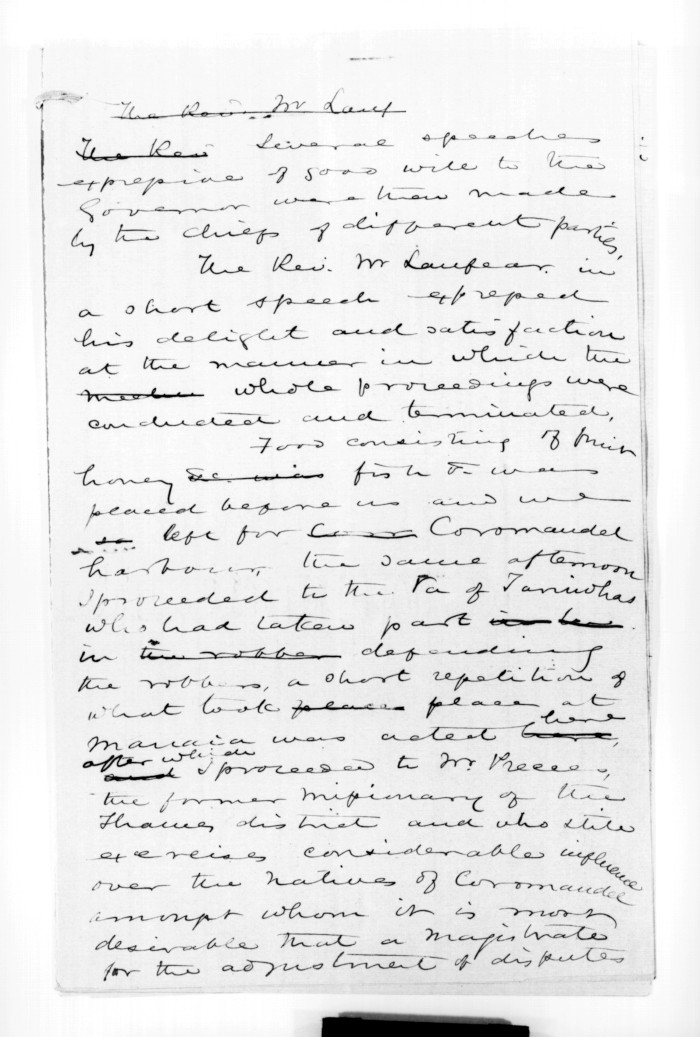 The Rev. Mr Lanf
The Rev Several speeches
expressive of good will to the
Governor were then made
by the chiefs of different parties,
The Rev. Mr Lanfear in
a short speech expressed
his delight and satisfaction
at the manner in which the
whole proceedings were
conducted and terminated,
Food consisting of
honey &c. was fish &c was
placed before us and we
so left for Coromandel
harbour, the same afternoon
I proceeded to the Pa of
who had taken part in
in the robber defending
the robbers, a short repetition of
what took place place at
Manaia was acted here here,
after which
and I proceeded to Mr. Preece,
the former Missionary of the
Thames district and who still
exercises considerable influence
over the natives of Coromandel
amongst whom it is most
desirable that a Magistrate
for the adjustment of disputes